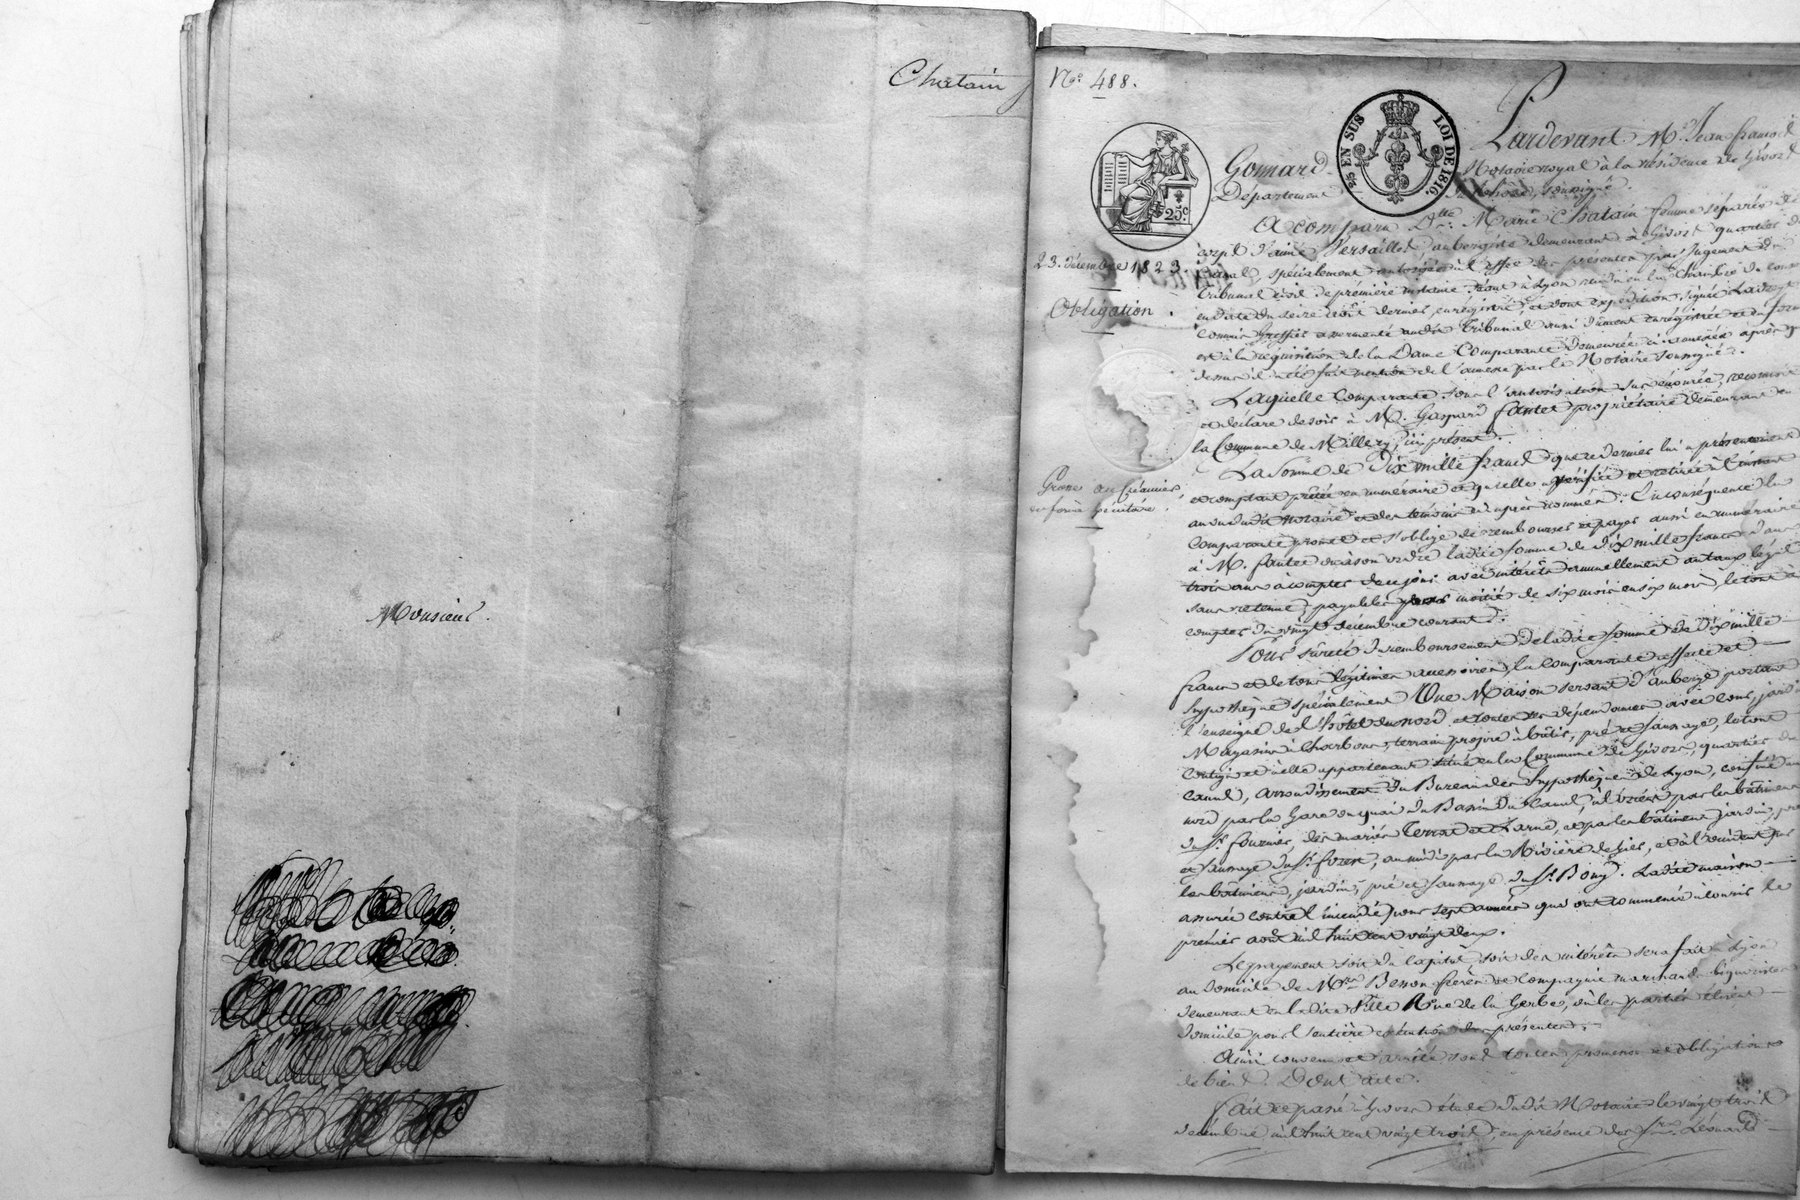 Chatain
Monsieur.
N.º 488.
25.c
EN SUS LOI DE 1816.
23. décembre 1823.
Obligation.
Grosse au Créancier,
en forme exécutoire.
Pardevant M.e Jean françois
Gonnard Notaire royal à la résidence de Givors
Département du Rhône, soussigné.
A comparu D.me Marie Chatain femme séparée de
corps d'aimé Versaillet aubergiste demeurant à Givors quartier du
Canal, spécialement autorisée à l'effet des présentes par Jugement du
tribunal civil de première instance séant à Lyon rendu en la Chambre du conseil
en date du seize août dernier, enregistré, et dont expédition signée
Commis Greffier assermenté audit Tribunal aussi dûment enregistrée et en forme
est à la réquisition de la Dame Comparante demeurée ci-annexée après que
dessus il a été fait mention de l'annexe par le Notaire soussigné.
Laquelle comparante sous l'autorisation sus énoncée, reconnait
et déclare devoir à M. Gaspard fautet propriétaire demeurant en
la Commune de Millery, ici présent.
La somme de Dix mille francs que ce dernier lui a présentement
et comptant prêtée en numéraire et qu'elle a vérifiée et retirée à l'instant
au vu dudit notaire et des témoins ci-après nommés. En conséquence la
comparante promet et s'oblige de rembourser et payer aussi en numéraire
à M. fautet ou à son ordre ladite somme de dix mille francs dans
trois ans à compter de ce jour avec intérêts annuellement au taux légal
sans retenue, payables par moitié de six mois en six mois, le tout à
compter du vingt décembre courant.
Pour sûreté du remboursement de ladite somme de Dix mille
francs et de tous légitimes accessoires, la comparante affecte et
hypothèque spécialement Une Maison servant d'auberge portant
l'enseigne de l'hôtel du nord, et toutes ses dépendances avec cour, jardin
Magasins à charbons, terrain propre à bâtir, pré et saussaye, le tout
contigu et à elle appartenant situé en la Commune de Givors, quartier du
canal, arrondissement du Bureau des hypothèques de Lyon, confiné au
nord par la Gare ou quai du Bassin du Canal, à l'orient par les bâtimens
du S.r fournier, des mariés Terrat et Charne, et par les bâtiment, jardin, pré
et saussaye du S.r forest, au midi par la Rivière de Gier, et à l'occident par
les bâtimens, jardin, pré et saussaye du S.r Bouy. Ladite maison
assurée contre l'incendie pour sept années qui ont commencé à courir le
premier août mil huit cent vingt deux.
Le payement soit du capital soit des intérêts sera fait à Lyon
au domicile de M.rs Besson frères et Compagnie marchands liquoristes
demeurant en ladite Ville Rue de la Gerbe, où les parties élisent
domicile pour l'entière exécution des présentes.
Ainsi convenu et arrêté sous toutes promesses et obligations
de biens. Dont acte.
fait et passé à Givors étude dudit Notaire le vingt trois
décembre mil huit cent vingt trois, en présence des S.rs Léonard